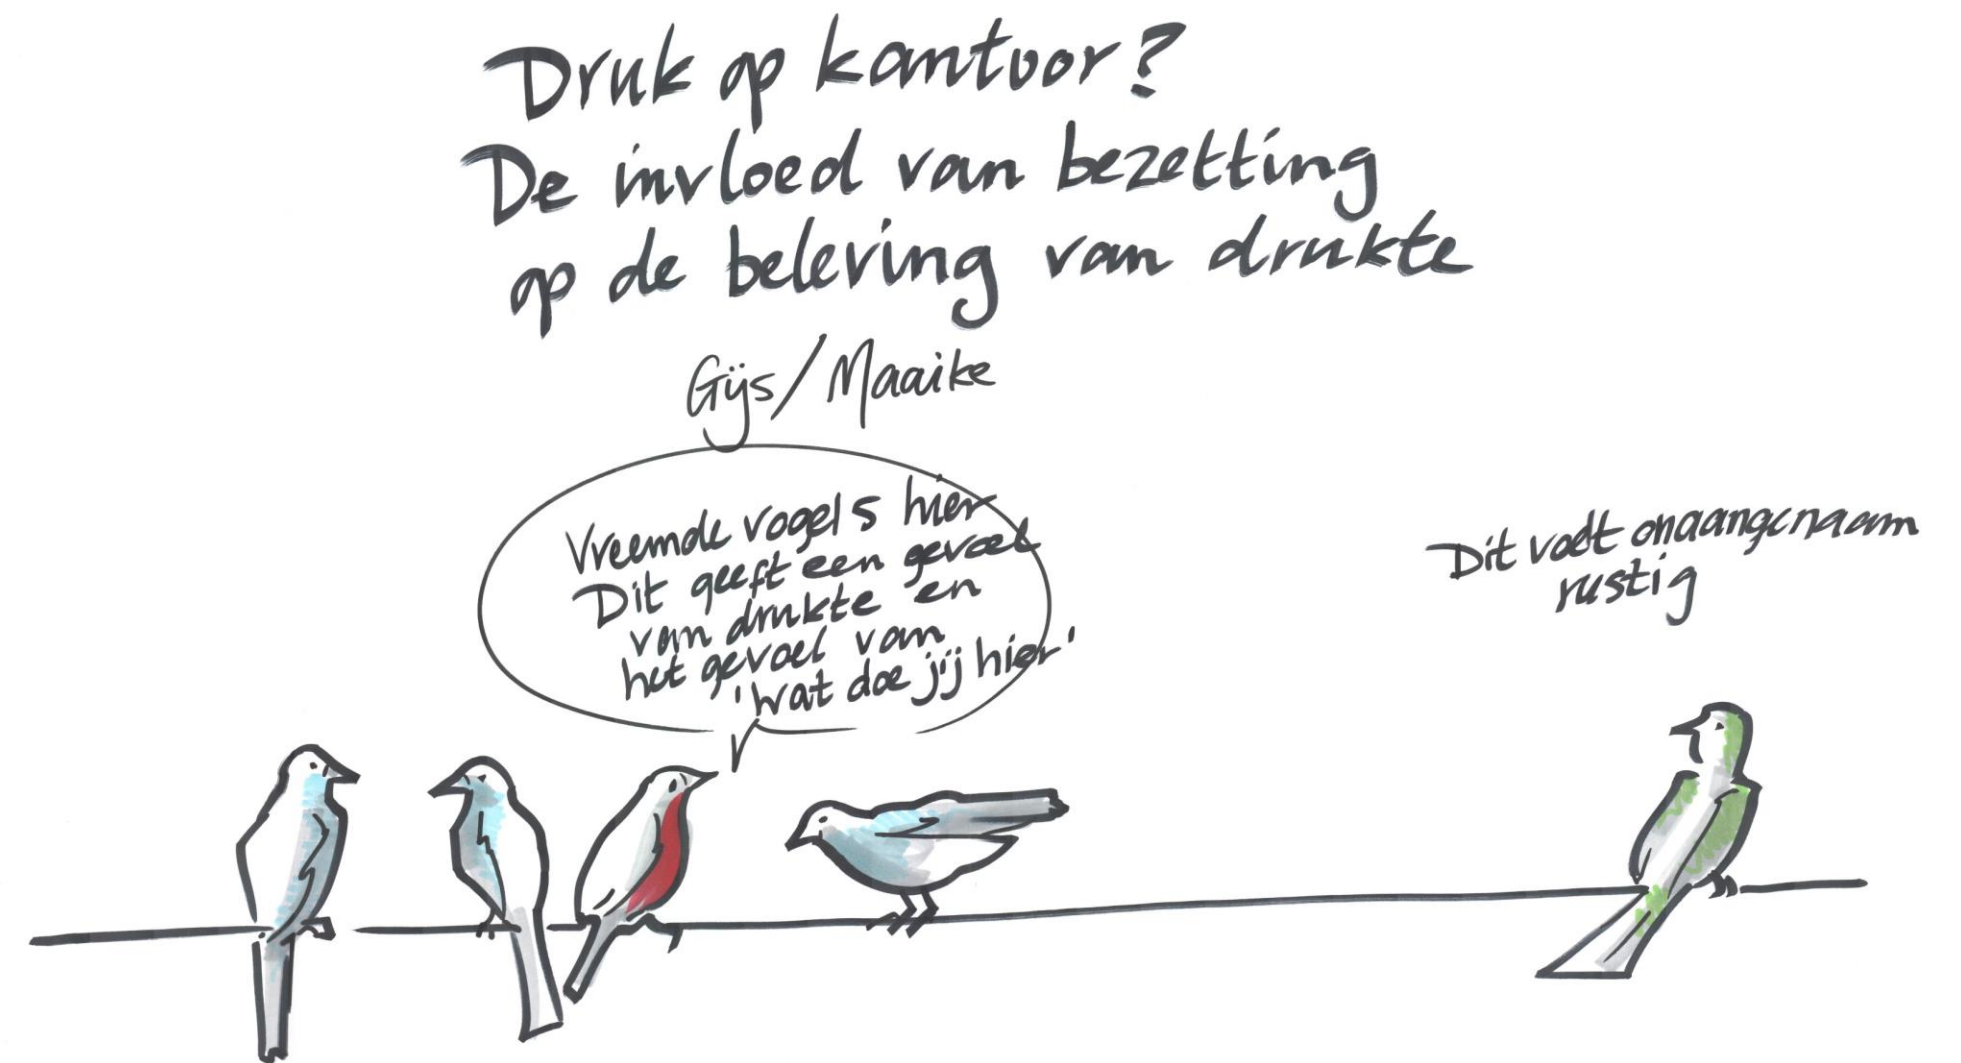 Druk op kantoor?
De invloed van bezetting
op de beleving van drukte
Gijs/Maaike
Vreemde vogels hier
Dit geeft een gevoel
van drukte en
het gevoel van
'wat doe jij hier'
Dit voelt onaangenaam
rustig